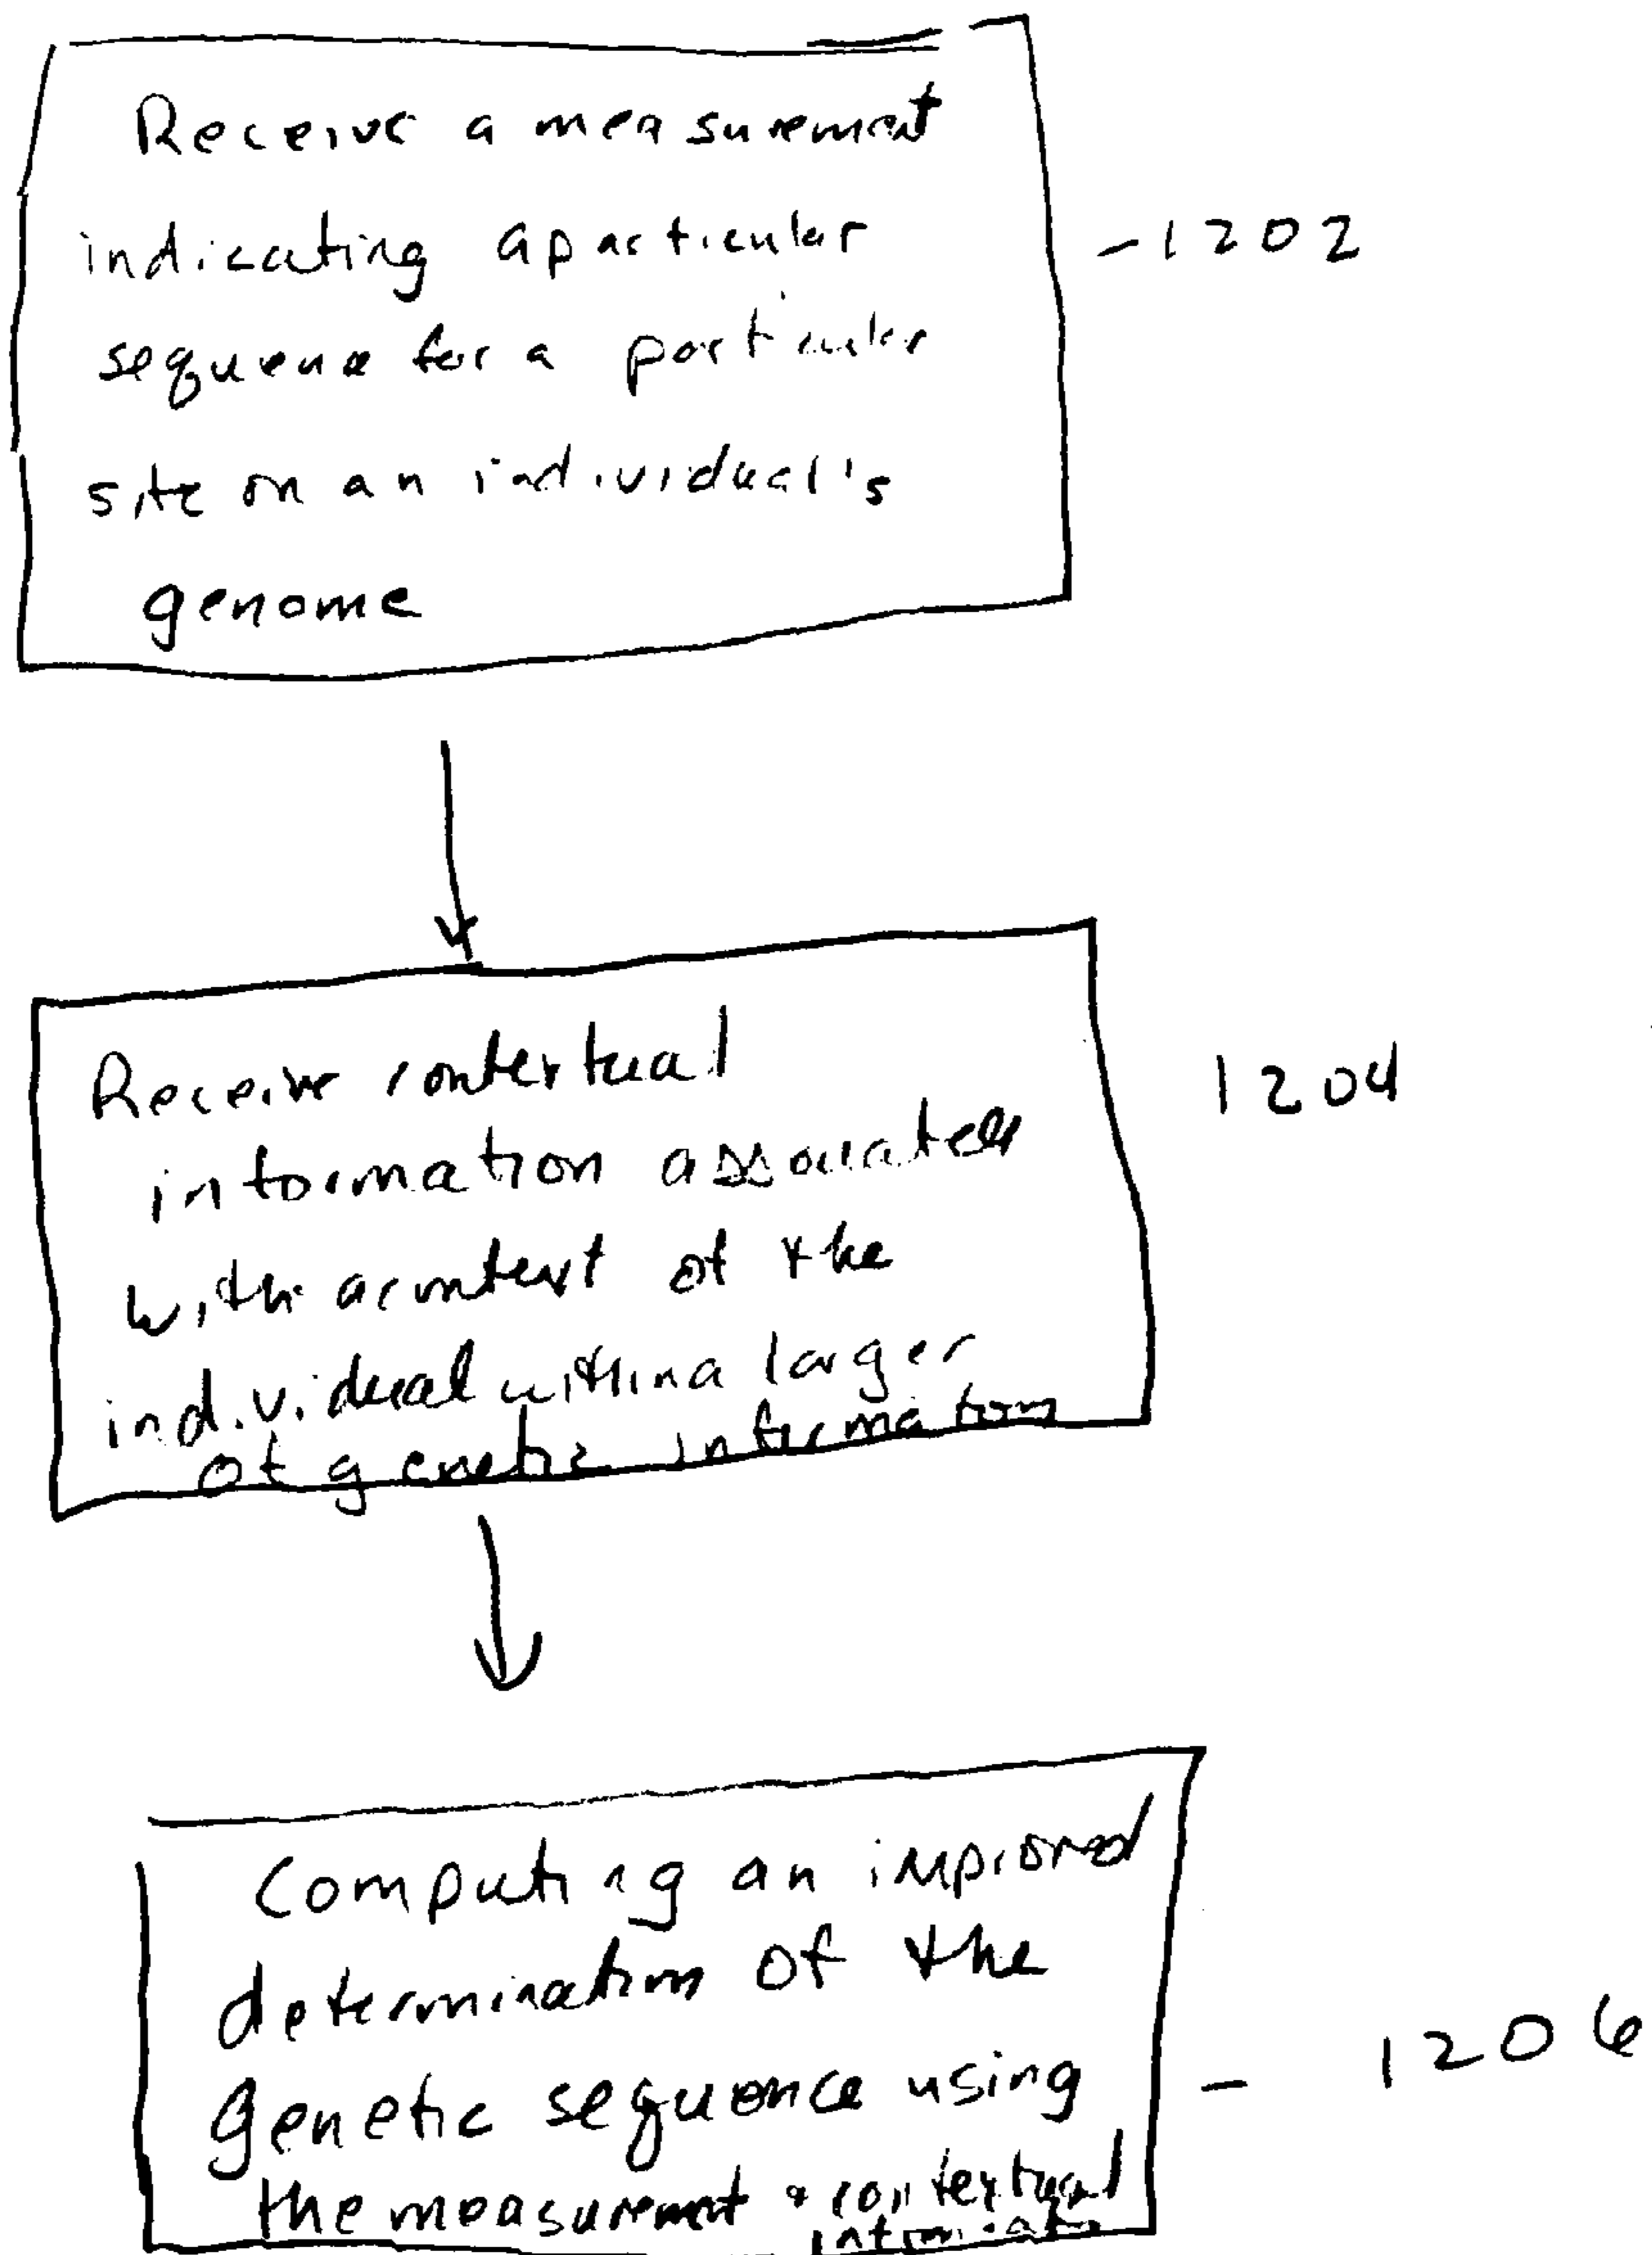 Receive a measurement
indicating a particular
-1202
sequence for a particular
site on an individual's
genome
Receive contextual
1204
information associated
with a context of the
individual within a larger
of genetic information
Computing an improved
determination of the
- 1206
genetic sequence using
the measurement + contextual
information